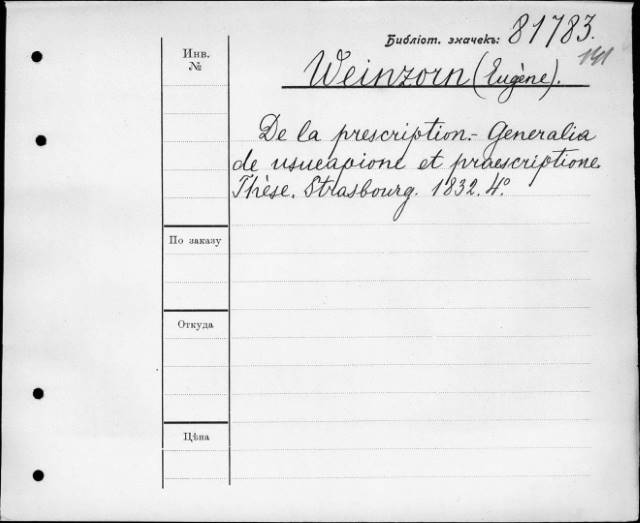 Библіот. значекъ: 81783.
141
Инв.
№
Weinzorn (Eugène).
De la prescription.- Generalia
de usucapione et praescriptione.
Thèse. Strasbourg. 1832. 4º.
По заказу
Откуда
Цѣна